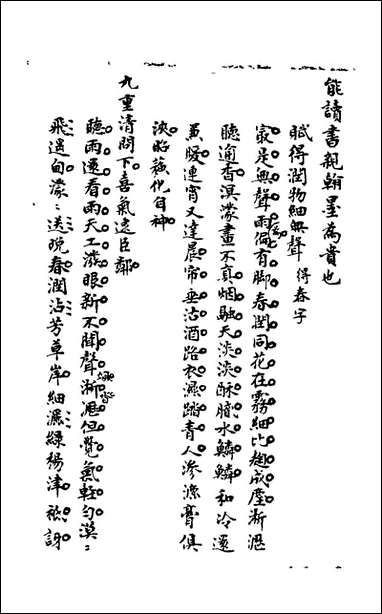 能讀書親翰墨為貴也
賦得潤物細無聲 得春字
最是無聲雨偏有脚春潤同花在霧細比麹成塵淅瀝
聽逾杳溟濛畫不真烟融天淡淡酥膩水鱗鱗和冷還
兼暖連宵又達晨帘垂沽酒路衣濕踏青人滲漉膏俱
浹昭蘇化自神
九重清問下喜氣遠臣鄰
聽雨還看雨天工潑眼新不聞聲淅瀝但覺氣輕勻漠:
飛遇甸濛:送晚春潤沾芳草岸細灑綠楊津